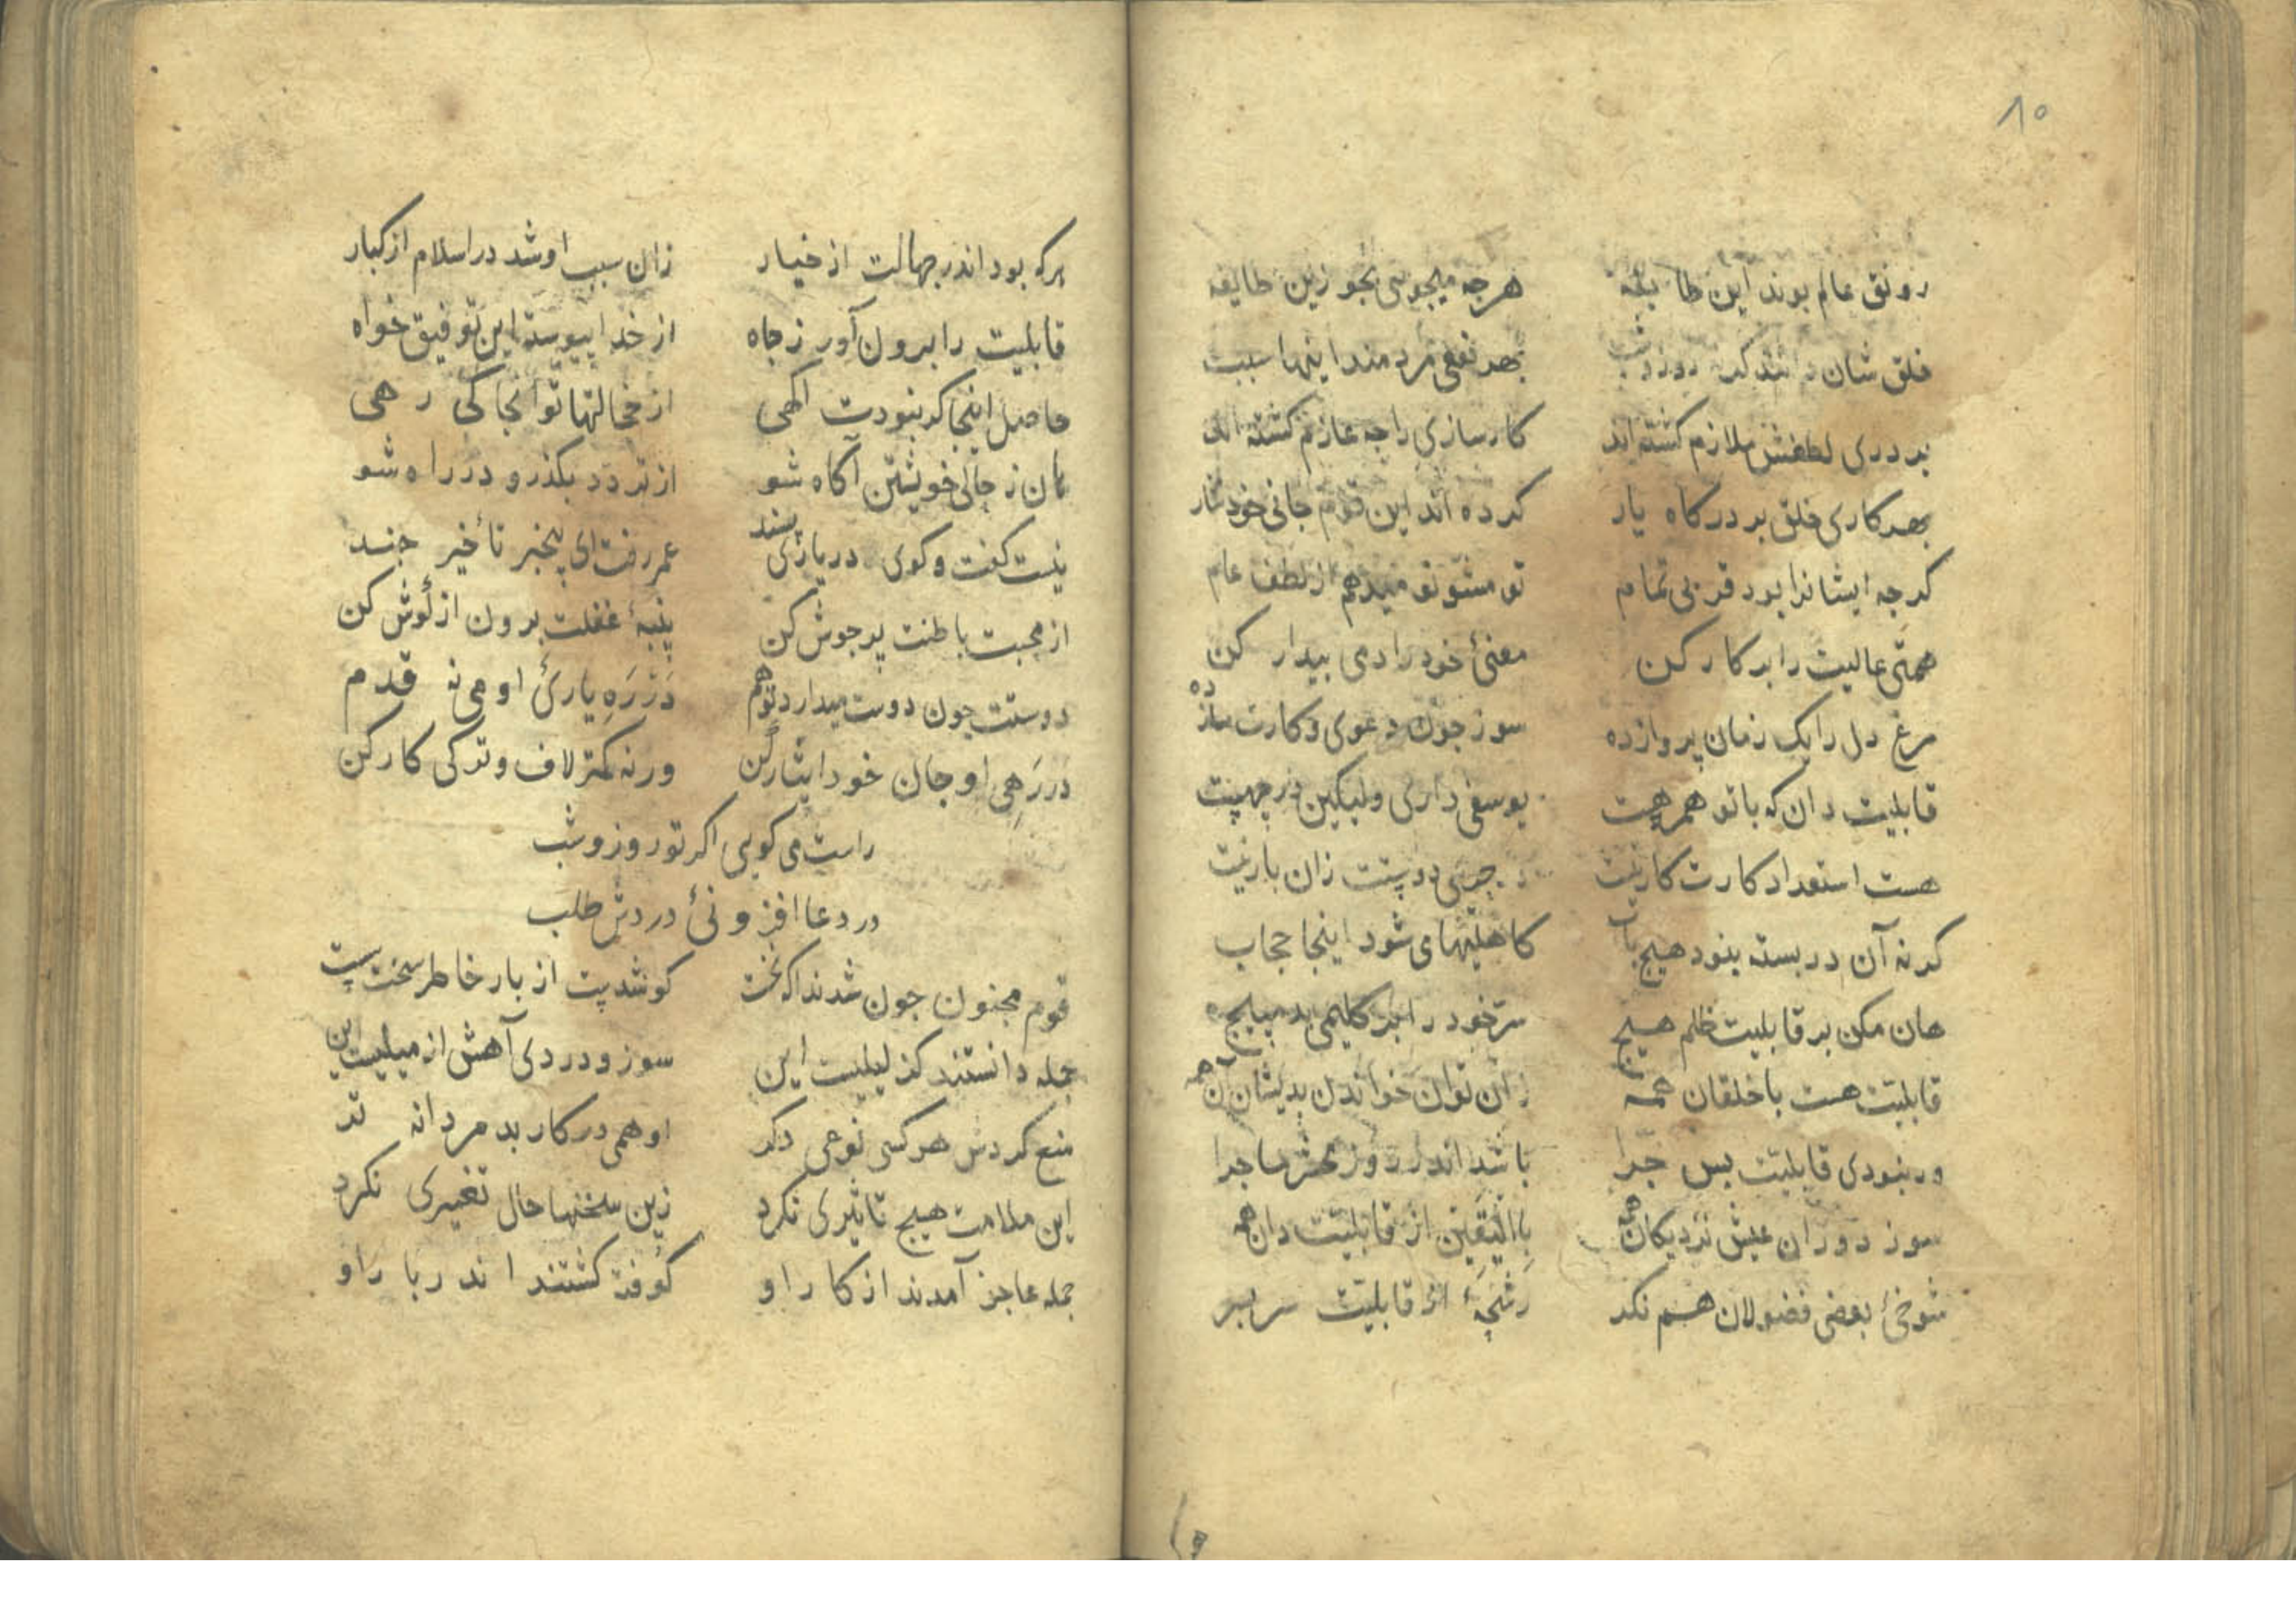 ۸۰
رونق عالم بوند این طایفه هرجه میجویی بجو زین طایفه
خلق شان داشتند کرد روز وشب بهر نفع مردمند اینها سبب
بر دری لطفش ملازم کشته اند کارسازی را جه عازم کشته اند
بهر کاری خلق بر درکاه یار کرده اند این قوم جانی خود نثار
کرجه ایشانرا بود قربی تمام تو مشو نومیدهم از لطف عام
همتی عالیت را بر کار کن معنئ خود را دمی بیدار کن
مرغ دل را یک زمان پرواز ده سوز جون دعوی وکارت ساز ده
قابلیت دان که با تو همرهست یوسفی داری ولیکین در جهیست
هست استعداد کارت کار نیست جربی دوستت زان بار نیست
کر نه آن در بسته بنود هیج باب کاهلیهای شود اینجا حجاب
هان مکن بر قابلیت ظلم هیج سر خود را بر کلیمی بد مپیج
قابلیت هست با خلقان همه زان توان خواندن بدیشان آن همه
ور بنودی قابلیت بس جرا باشد اندر روز محشر ماجرا
سوز دوران عیش نزدیکان همه باالیقین از قابلیت دان همه
شوخئ بعضی فضولان هم نکر رشحهٔ از قابلیت سربسر
هرکه بود اندر جهالت از خیار زان سبب او شد در اسلام از کبار
قابلیت را برون آور ز جاه از خدا پیوسته این توفیق خواه
حاصل اینجا کر بنودت اکهی از خجالتها تو آنجا کی رهی
هان ز حالی خویشتن آکاه شو از تردد بکذر و در راه شو
نیست کفت وکوی در یاری پسند عمر رفت ای بیخبر تأخیر جند
از محبت باطنت پر جوش کن پنبهٔ غفلت برون از کوش کن
دوستت جون دوست میدارد توهم در ره یارئ او می نه قدم
در رهی او جان خود ایثار کن ورنه کمتر لاف وترکی کار کن
راست می کویی اکر تو روز وشب
در دعا افزونئ دردش طلب
قوم مجنون جون شدند اکه نخست کو شد پست از بار خاطر سخت سست
جمله دانستند کز لیلیست این سوز ودردی آهش از میلیست این
منع کردش هر کسی نوعی دکر او همی در کار بد مردانه تر
این ملامت هیج تاثیری نکرد زین سخنها حال تغییری نکرد
جمله عاجز آمدند از کار او کوفته کشتند اندر بار او